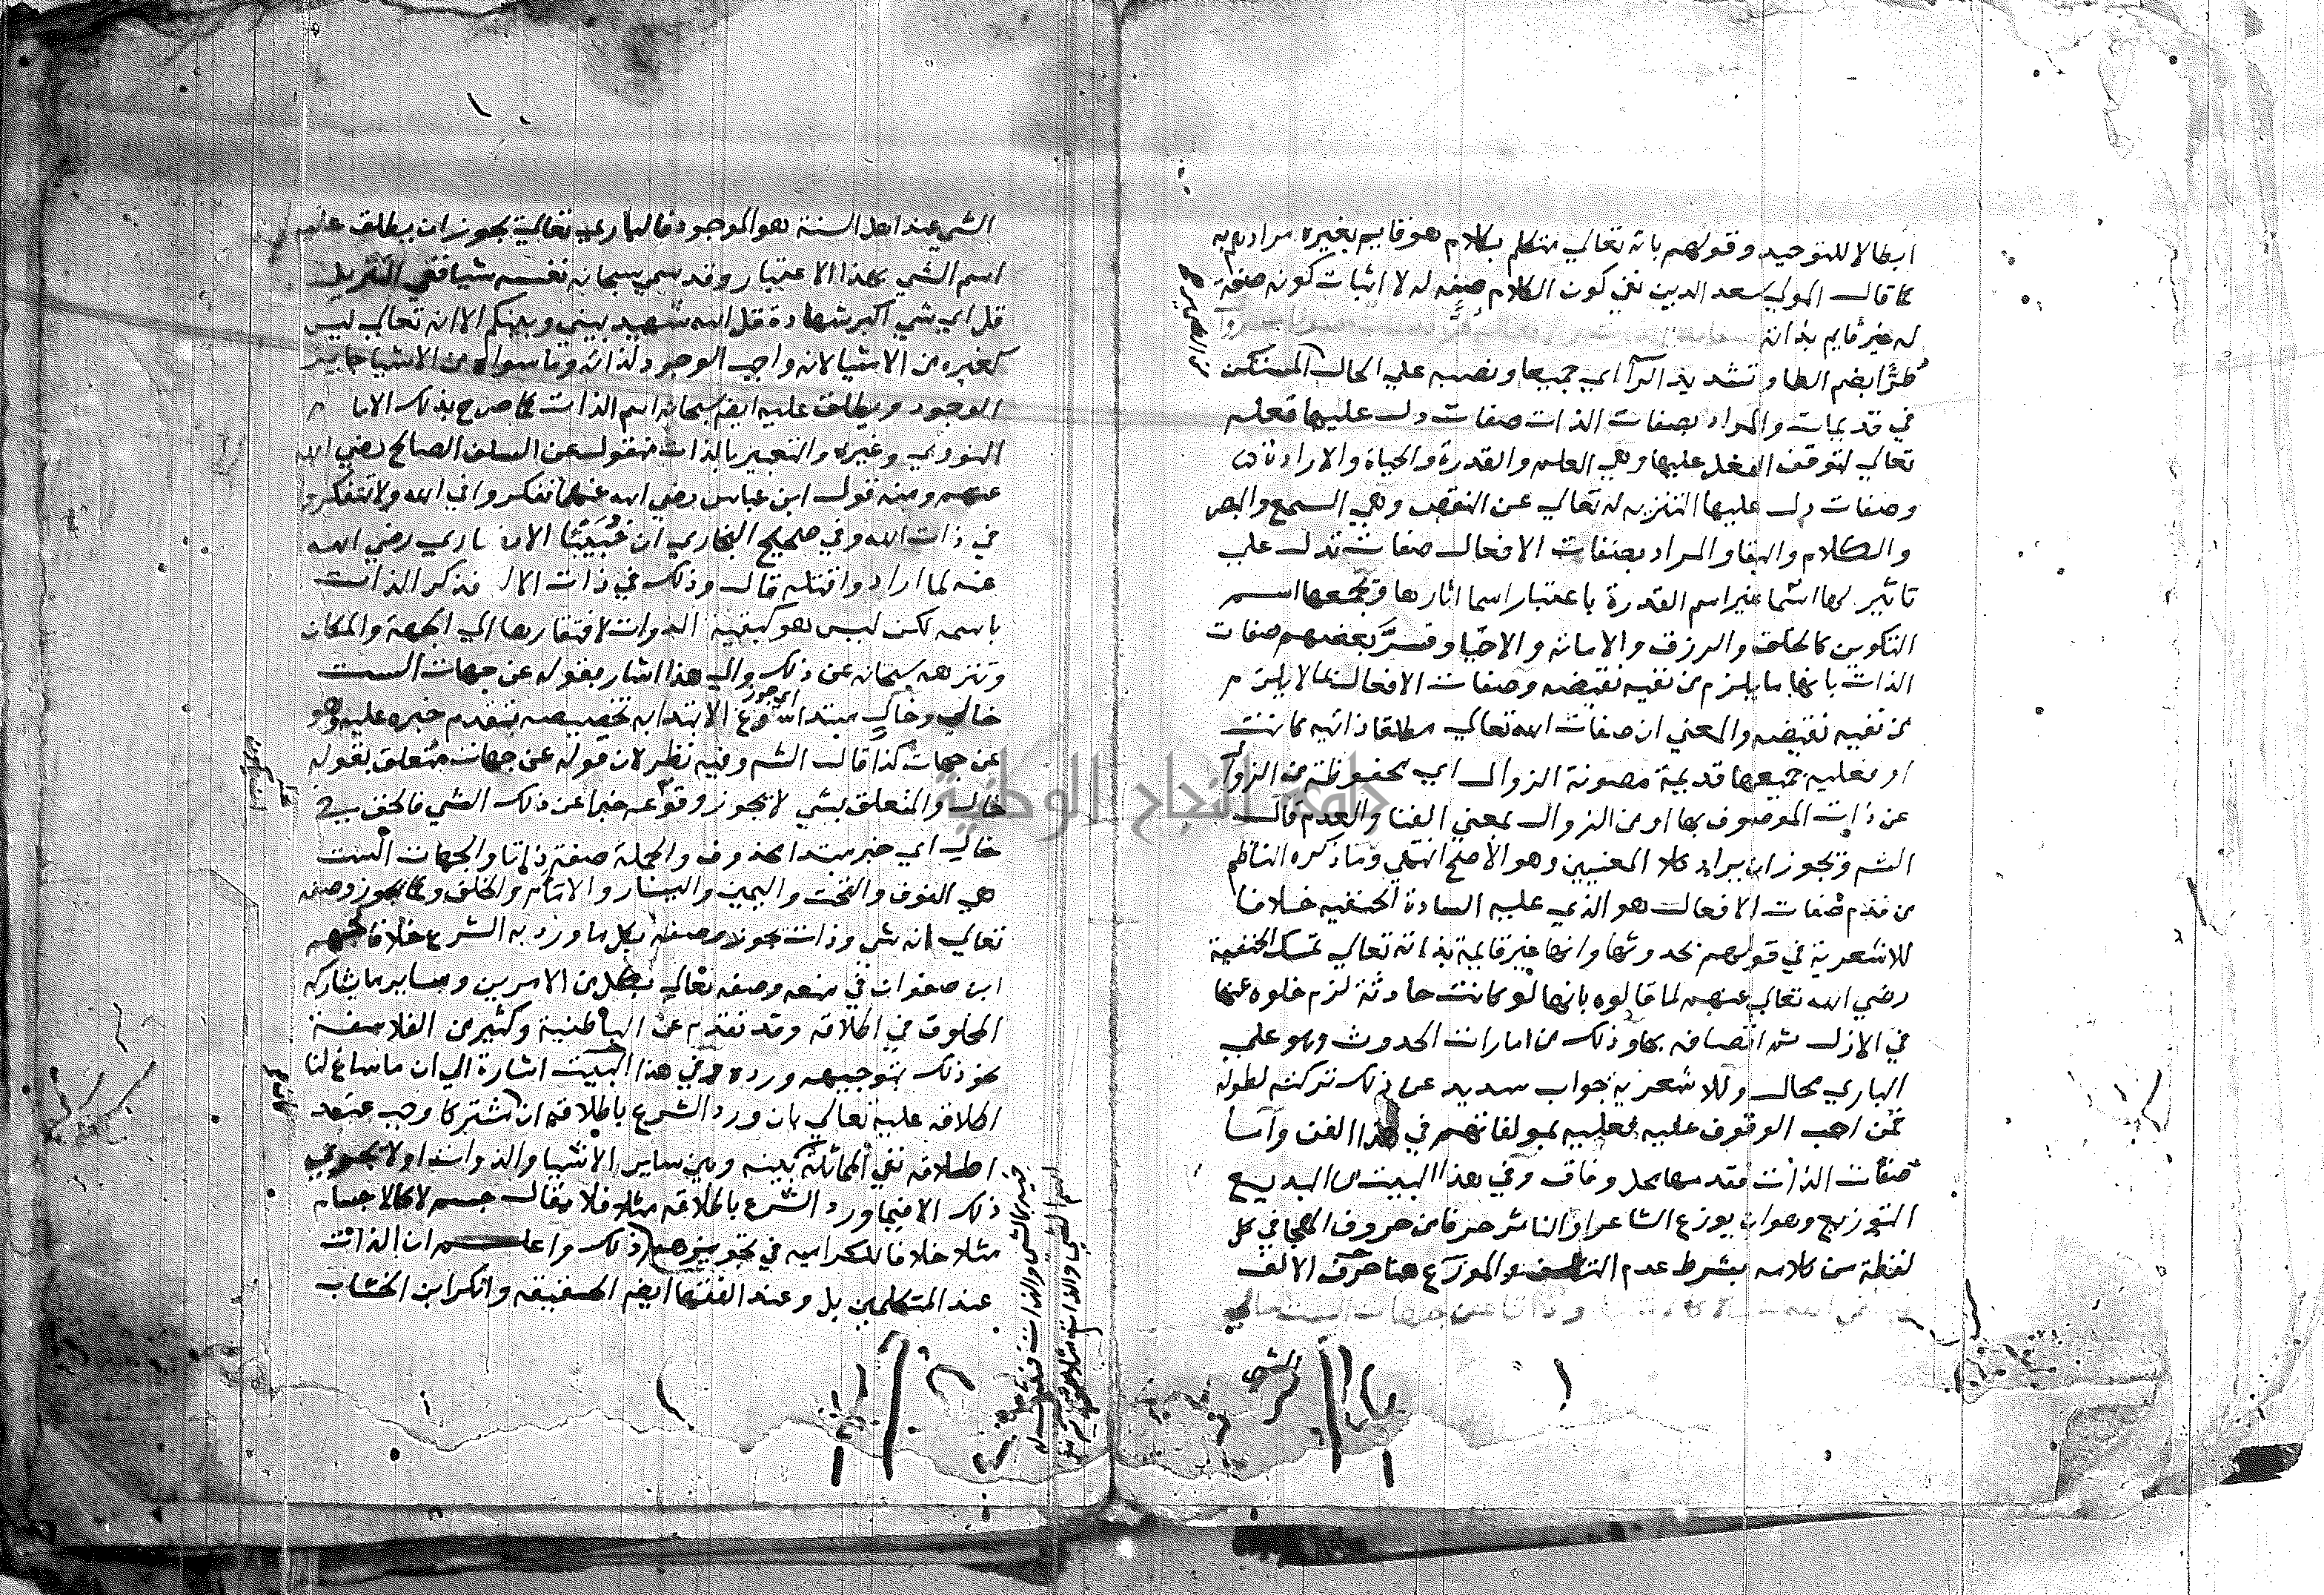 ابطالا للتوحيد وقولهم بانه تعالي متكلم بكلام هو قايم بغيره مرادهم به
كما قال المولي سعد الدين نفي كون الكلام صفة له لا اثبات كونه صفة
له غير قايم بذاته
طرًّا بضم الطا وتشديد الرآ اي جميعا ونصبه علي الحال المستكن
في قديمات والمراد بصفات الذات صفات دل عليها فعله
تعالي لتوقف الفعل عليها وهي العلم والقدرة والحياة والارادة
وصفات دل عليها التنزيه له تعالي عن النقص وهي السمع والبصر
والكلام والبقا والمراد بصفات الافعال صفات تدل علي
تاثير لها اسما غير اسم القدرة باعتبار اسما اثارها وتجمعها اسم
التكوين كالخلق والرزق والاماتة والاحيا وفسر بعضهم صفات
الذات بانها ما يلزم من نفيه نقيضه وصفات الافعال بما لا يلزم
من نفيه نقيضه والمعني ان صفات الله تعالي مطلقا ذاتيه كانت
او فعليه جميعها قديمة مصونة الزوال اي محفوظة من الزوال
عن ذات الموصوف بها او من الزوال بمعني الفنا والعدم قال
الشم ويجوز ان يراد كلا المعنيين وهو الاصح انتهي وما ذكره الناظم
من قدم صفات الافعال هو الذي عليه السادة الحنفيه خلافا
للاشعرية في قولهم بحدوثها وانها غير قايمة بذاته تعالي تمسك الحنفية
رضي الله تعالي عنهم لما قالوه بانها لو كانت حادثة لزم خلوه عنها
في الازل ثم اتصافه بها وذلك من امارات الحدوث وهو علي
الباري محال وللاشعرية جواب سديد عن ذلك تركته لطوله
فمن احب الوقوف عليه فعليه بمولفاتهم في هذا الفن وآسا
صفات الذات فقدمها محل وفاق وفي هذا البيت من البديع
التوزيع وهو ان يوزع الشاعر او الناثر حرفا من حروف الهجا في كل
لفظة من كلامه بشرط عدم والموزع هنا حرف الالف
الشي
الشي عند اهل السنة هو الموجود فالباري تعالي يجوز ان يطلق عليه
اسم الشي بهذا الاعتبار وقد سمي سبحانه نفسه شيا ففي التنزيل
قل اي شي اكبر شهادة قل الله شهيد بيني وبينكم الا انه تعالي ليس
كغيره من الاشيا لانه واجب الوجود لذاته وما سواه من الاشيا جايز
الوجود ويطلق عليه ايضم سبحانه اسم الذات كما صرح بذلك الامام
النووي وغيره والتعبير بالذات منقول عن السلف الصالح رضي الله
عنهم ومنه قول ابن عباس رضي الله عنهما تفكروا في الله ولا تتفكروا
في ذات الله وفي صحيح البخاري ان خُبَيْبًا الانصاري رضي الله
عنه لما ارادوا قتله قال وذلك في ذات الاله فذكر الذات
باسمه لكن ليس هو كبقية الذوات لافتقارها الي الجهة والمكان
وتنزهه سبحانه عن ذلك والي هذا اشار بقوله عن جهات الست
خالي وخالي مبتدا سوغ الابتدا به تخصيصه بتقدم خبره عليه وهو
عن جهات كذا قال الشم وفيه نظر لان قوله عن جهات متعلق بقوله
خال والمتعلق بشي لا يجوز وقوعه خبرا عن ذلك الشي فالحق
خالي اي خبر مبتدا محذوف والجملة صفة ذاتا والجهات الست
هي الفوق والتحت واليمين واليسار والامام والخلف وكما يجوز وصفه
تعالي بانه شي وذات يجوز وصفه بكل ما ورد به الشرع خلافا لجهم
ابن صفوان في منعه وصفه تعالي بكل من الامرين وساير ما يشاركه
المخلوق في اطلاقه وقد تقدم عن الباطنية وكثير من الفلاسفة
نحو ذلك بتوجيهه ورده وفي هذا البيت اشارة الي ان ما ساغ لنا
اطلاقه عليه تعالي بان ورد الشرع باطلاقه ان مشتركا وجب عند
اطلاقه نفي المماثلة بينه وبين ساير الاشيا والذوات اولا يجوز في
ذلك الا فيما ورد الشرع باطلاقه مثلا فلا يقال جسم لا كالاجسام
مثلا خلافا للكراميه في تجويزهم ذلك واعلم ان الذات
عند المتكلمين بل وعند الفقها ايضم الحقيقه وانكر ابن الخشاب